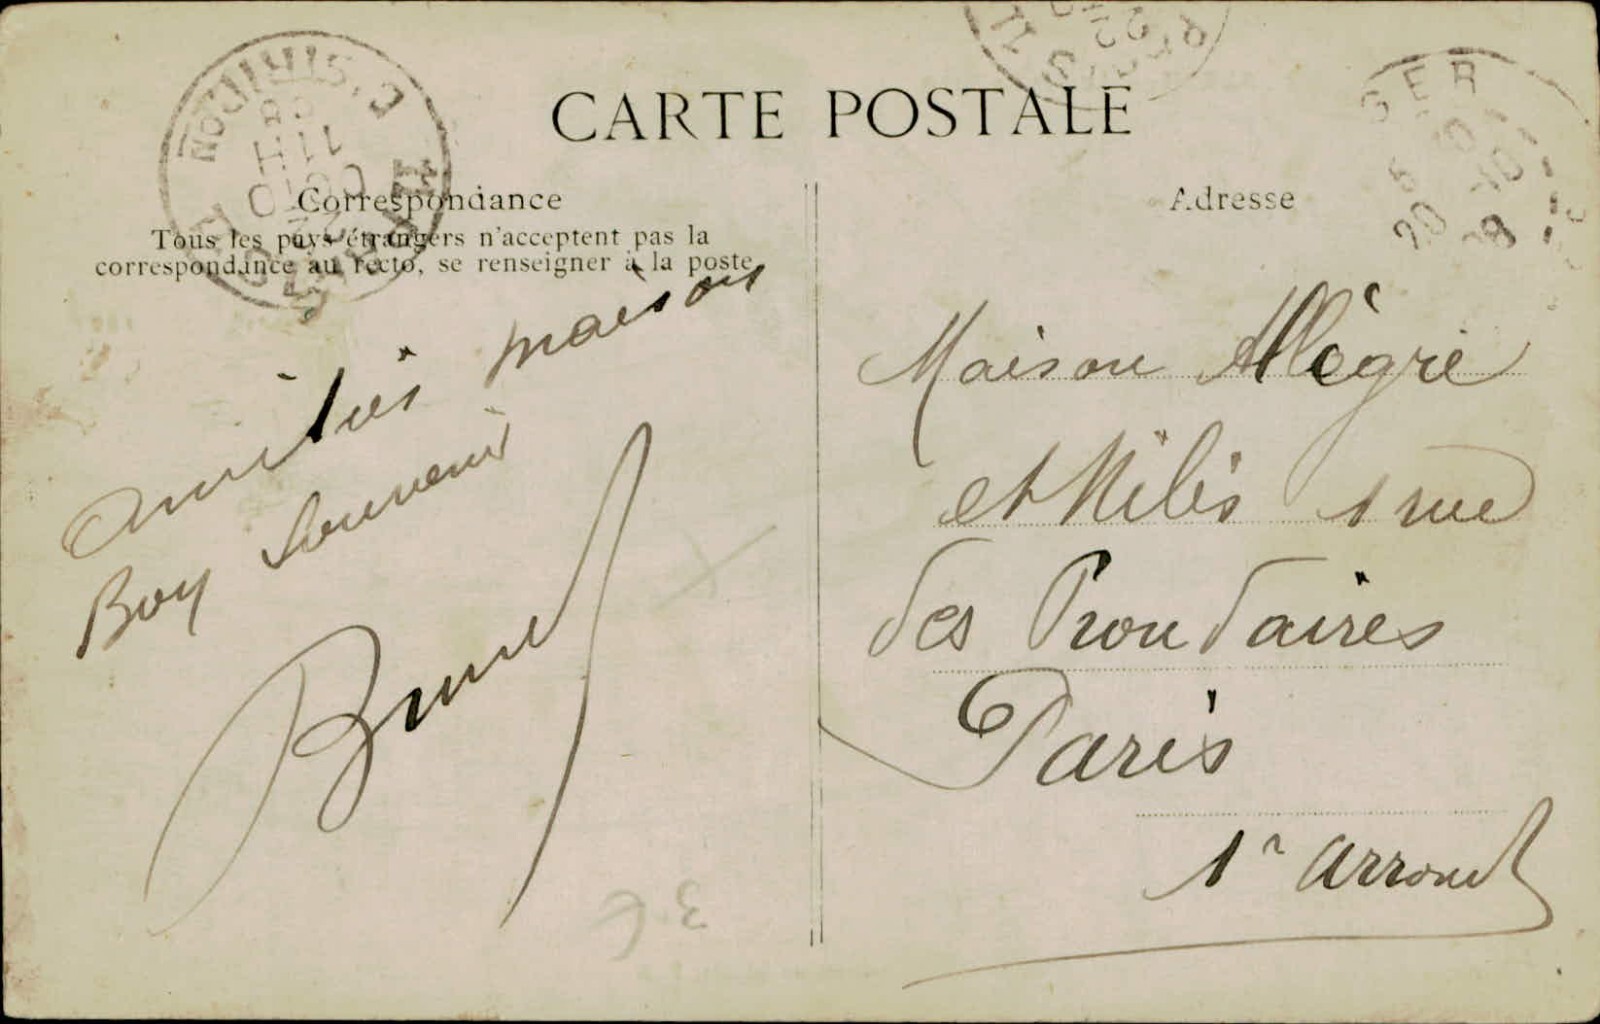 CARTE POSTALE
Correspondance
Tous les pays étrangers n'acceptent pas la
correspondance au recto, se renseigner à la poste
amitiés maison
Bon Souvenir
Brunel
Adresse
Maison Allègre
et 1 rue
des Prouvaires
Paris
1r Arrond